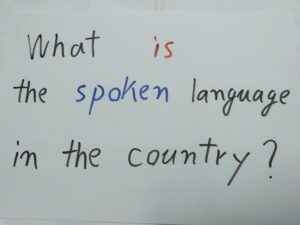 What is
the spoken language
in the country?